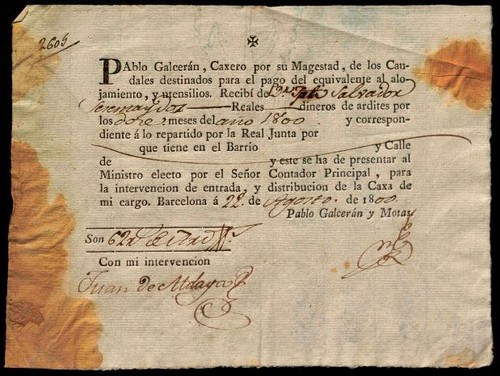 2603
✠
PAblo Galcerán, Caxero por su Magestad, de los Cau-
dales destinados para el pago del equivalente al alo-
jamiento, y utensilios. Recibí de Salvador
Reales dineros de ardites por
los doze meses del año 1800 y correspon-
diente á lo repartido por la Real Junta por
que tiene en el Barrio y Calle
de y este se ha de presentar al
Ministro electo por el Señor Contador Principal, para
la intervencion de entrada, y distribucion de la Caxa de
mi cargo. Barcelona á 22 de Agosto de 1800
Pablo Galcerán y Moray
Son 62
Con mi intervencion
Juan de Aldaya